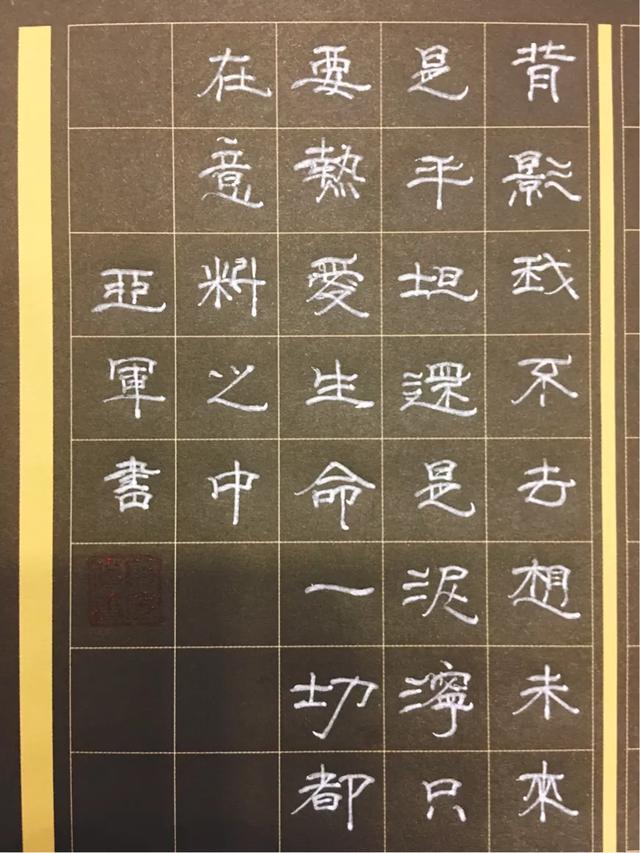 背影我不去想未來
是平坦還是泥濘只
要熱愛生命一切都
在意料之中
亞軍書